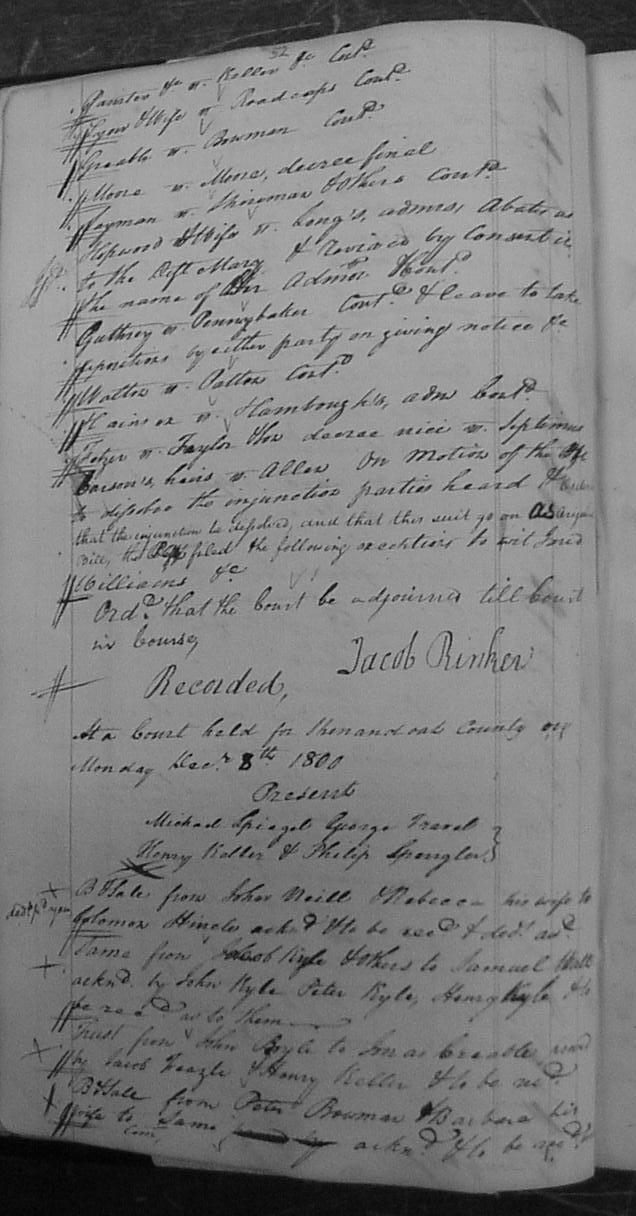 52
Painter &c vs. Keller &c Cont.d
Tyson & Wife vs Roadcaps Cont.d
Greable vs. Bowman Cont.d
Moore vs. Moore, decree final
Layman vs. Shireman & Others Cont.d
Hopwood & Wife vs. Long's, admrs, Abates as
to the Deft Mary & revived by Consent in
the name of Her Admor. & Cont.d
Guthrey vs Pennybaker Cont.d & leave to take
depositions by either party on giving notice &c
Walton vs. Patton Cont.d
Hainson vs. Hambough's, adm Cont.d
Fetzer vs. Taylor &ca decree nici vs. Septimus
Carson's, heirs vs. Allen On Motion of the
to dissolve the injunction parties heard &
that the injunction be dissolved, and that this suit go on as
Bill, the filed the following exceptions to wit
Williams &c
Ord.d that the Court be adjourned till Court
in Course,
Jacob Rinker
Recorded,
At a Court held for Shenandoah County on
Monday Dec.r 8th 1800
Present
Michael Spiegel George
Henry Keller & Philip Spengler
B &Sale from John Neill & Rebecca his wife to
Solomon Hincle ackn.d & to be rec.d & ded.s
Same from Jacob Kyle & Others to Samuel
acknd. by John Kyle Peter Kyle, Henry Kyle & to
be rec.d as to them
Trust from John Boyle to Greable
by Jacob & Henry Keller & to be rec.d
B&Sale from Peter Bowman & Barbara his
wife to Same ackn.d & to be rec.d